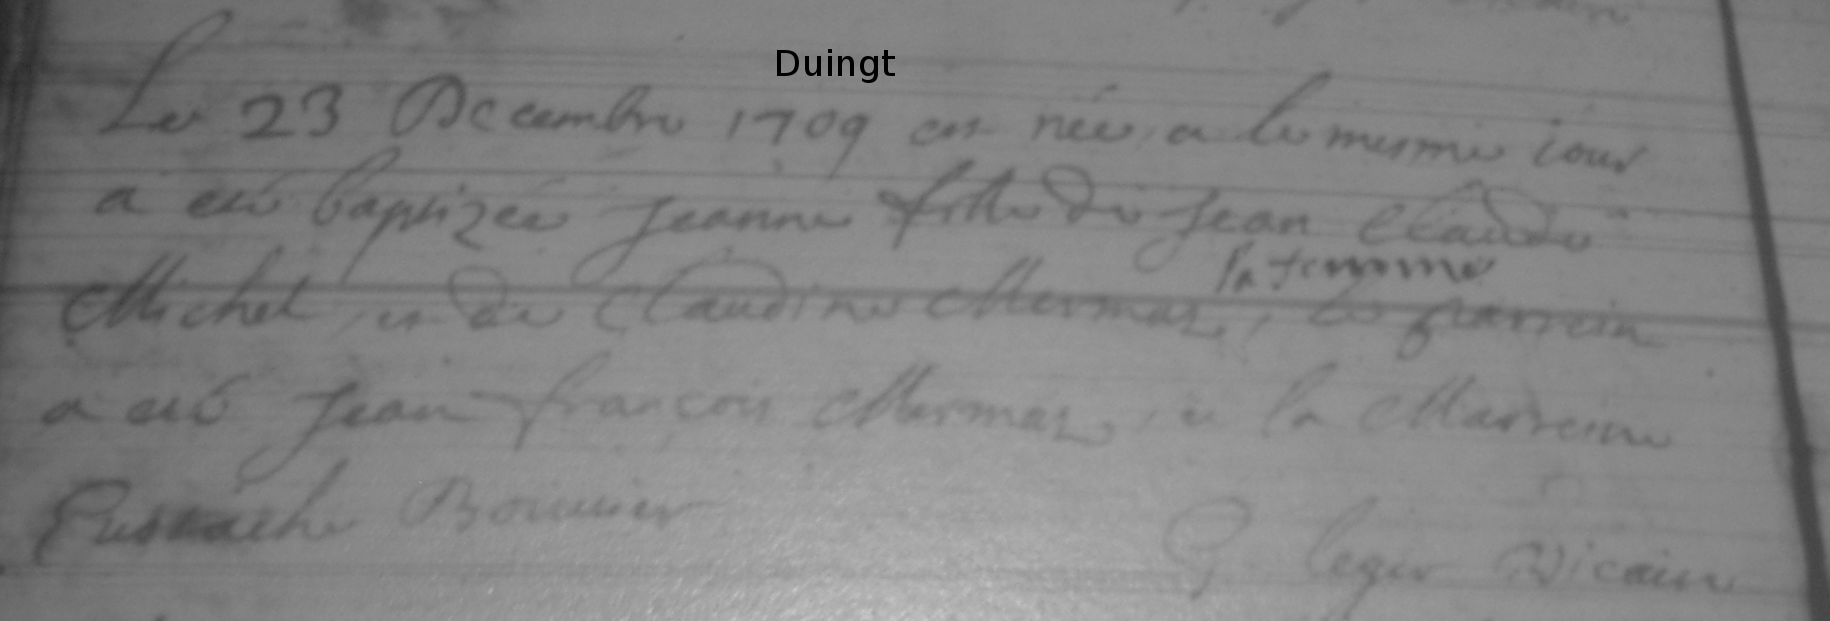 Duingt
Le 23 Decembre 1709 est née, a le mesme iour
a esté baptizée Jeanne fille de Jean Claude
la femme
Michel, et de Claudine Mermaz, le parrein
a esté Jean françois Mermaz, et la Marreine
Eustache Bouvier
G. leger Vicaire